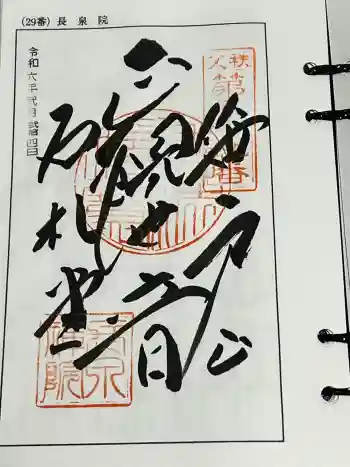 (29番) 長泉院
令和六年弐月弐拾四日
秩父第廿九番
笹戸山
八觀世音
石札堂
長泉院